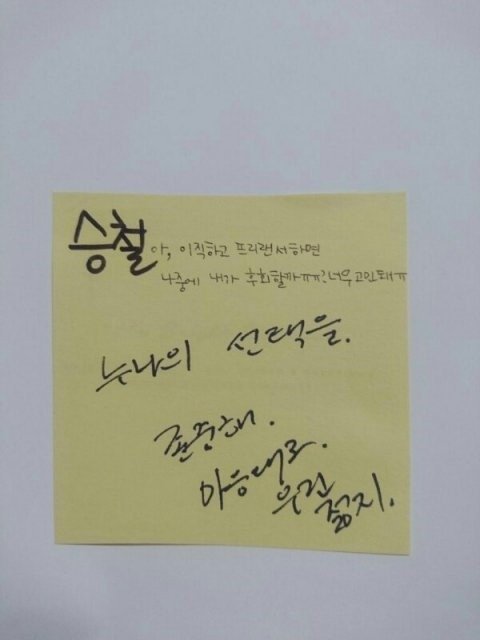 승철아, 이직하고 프리랜서하면
나중에 내가 후회할까ㅠㅠ?너무고민돼ㅠ
누나의 선택을.
존중해.
마음대로.
우린
젊지.